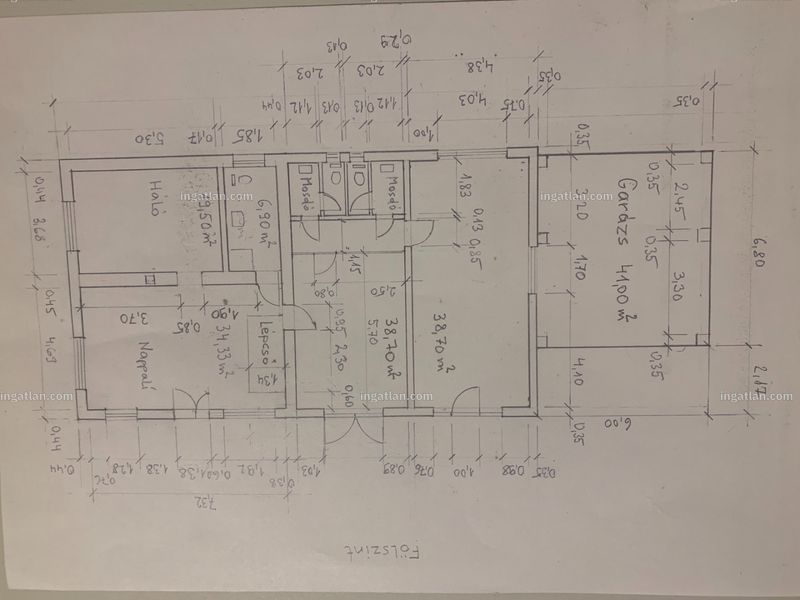 Földszint
Háló
19,50 m²
6,90 m²
Mosdó
Mosdó
Nappali
34,33 m²
Lépcső
38,70 m²
38,70 m²
Garázs 41,00 m²
0,13
0,29
2,03
2,03
4,38
0,35
0,44
1,12
0,13
0,13
1,12
4,03
0,75
0,35
5,30
0,17
1,85
1,00
0,35
0,44
3,68
0,45
4,69
0,44
1,83
0,13
0,85
3,20
1,70
4,10
0,35
0,35
2,45
0,35
3,30
0,35
6,80
2,17
6,00
3,70
0,85
1,90
1,34
1,15
0,80
2,50
0,95
2,30
5,70
0,60
0,44
0,76
1,28
1,38
0,60
1,38
1,92
0,38
1,03
0,89
0,76
1,00
0,98
0,35
7,32
ingatlan.com
ingatlan.com
ingatlan.com
ingatlan.com
ingatlan.com
ingatlan.com
ingatlan.com
ingatlan.com
ingatlan.com
ingatlan.com
ingatlan.com
ingatlan.com